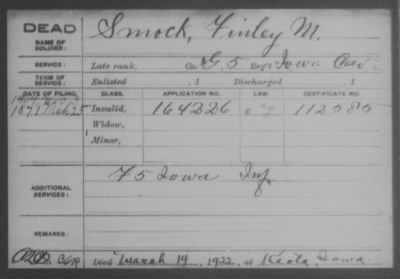 DEAD Smock, Finley M.
NAME OF SOLDIER:
SERVICE: Late rank, Co. G. 5 Reg't Iowa Cav.
TERM OF SERVICE: Enlisted , 1 Discharged , 1
DATE OF FILING. CLASS. APPLICATION NO. LAW. CERTIFICATE NO.
Invalid, 164226 112080
Widow,
Minor,
ADDITIONAL SERVICES: F 5 Iowa Inf.
REMARKS:
Died March 19, 1922, at Keota, Iowa